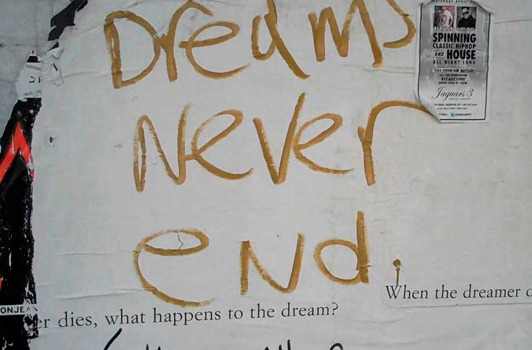 Dreams
Never
end.
SPINNING
CLASSIC HIPHOP
AND HOUSE
ALL NIGHT LONG
Jaguars 3
When the dreamer
er dies, what happens to the dream?